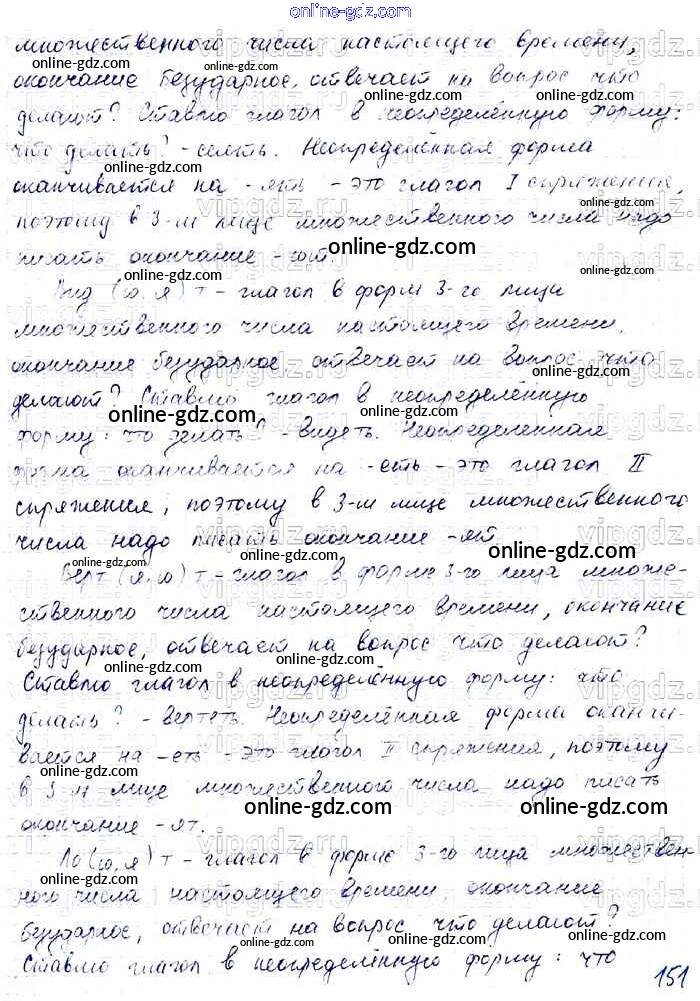 online-gdz.com
множественного числа настоящего времени,
окончание безударное, отвечает на вопрос что
делают? Ставлю глагол в неопределённую форму:
что делать? - сеять. Неопределённая форма
оканчивается на -ять - это глагол I спряжения,
поэтому в 3-м лице множественного числа надо
писать окончание -ют.
Вид (ю, я) т - глагол в форм 3-го лица
множественного числа настоящего времени,
окончание безударное, отвечает на вопрос что
делают? Ставлю глагол в неопределённую
форму: что делать? - видеть. Неопределенная
форма оканчивается на -еть - это глагол II
спряжения, поэтому в 3-м лице множественного
числа надо писать окончание -ят.
Верт (я, ю) т - глагол в форме 3-го лица множе-
ственного числа настоящего времени, окончание
безударное, отвечает на вопрос что делают?
Ставлю глагол в неопределённую форму: что
делать? - вертеть. Неопределённая форма оканчи-
вается на -еть - это глагол II спряжения, поэтому
в 3-м лице множественного числа надо писать
окончание -ят.
Ло (ю, я) т - глагол в форме 3-го лица множествен-
ного числа настоящего времени, окончание
безударное, отвечает на вопрос что делают?
Ставлю глагол в неопределённую форму: что
151